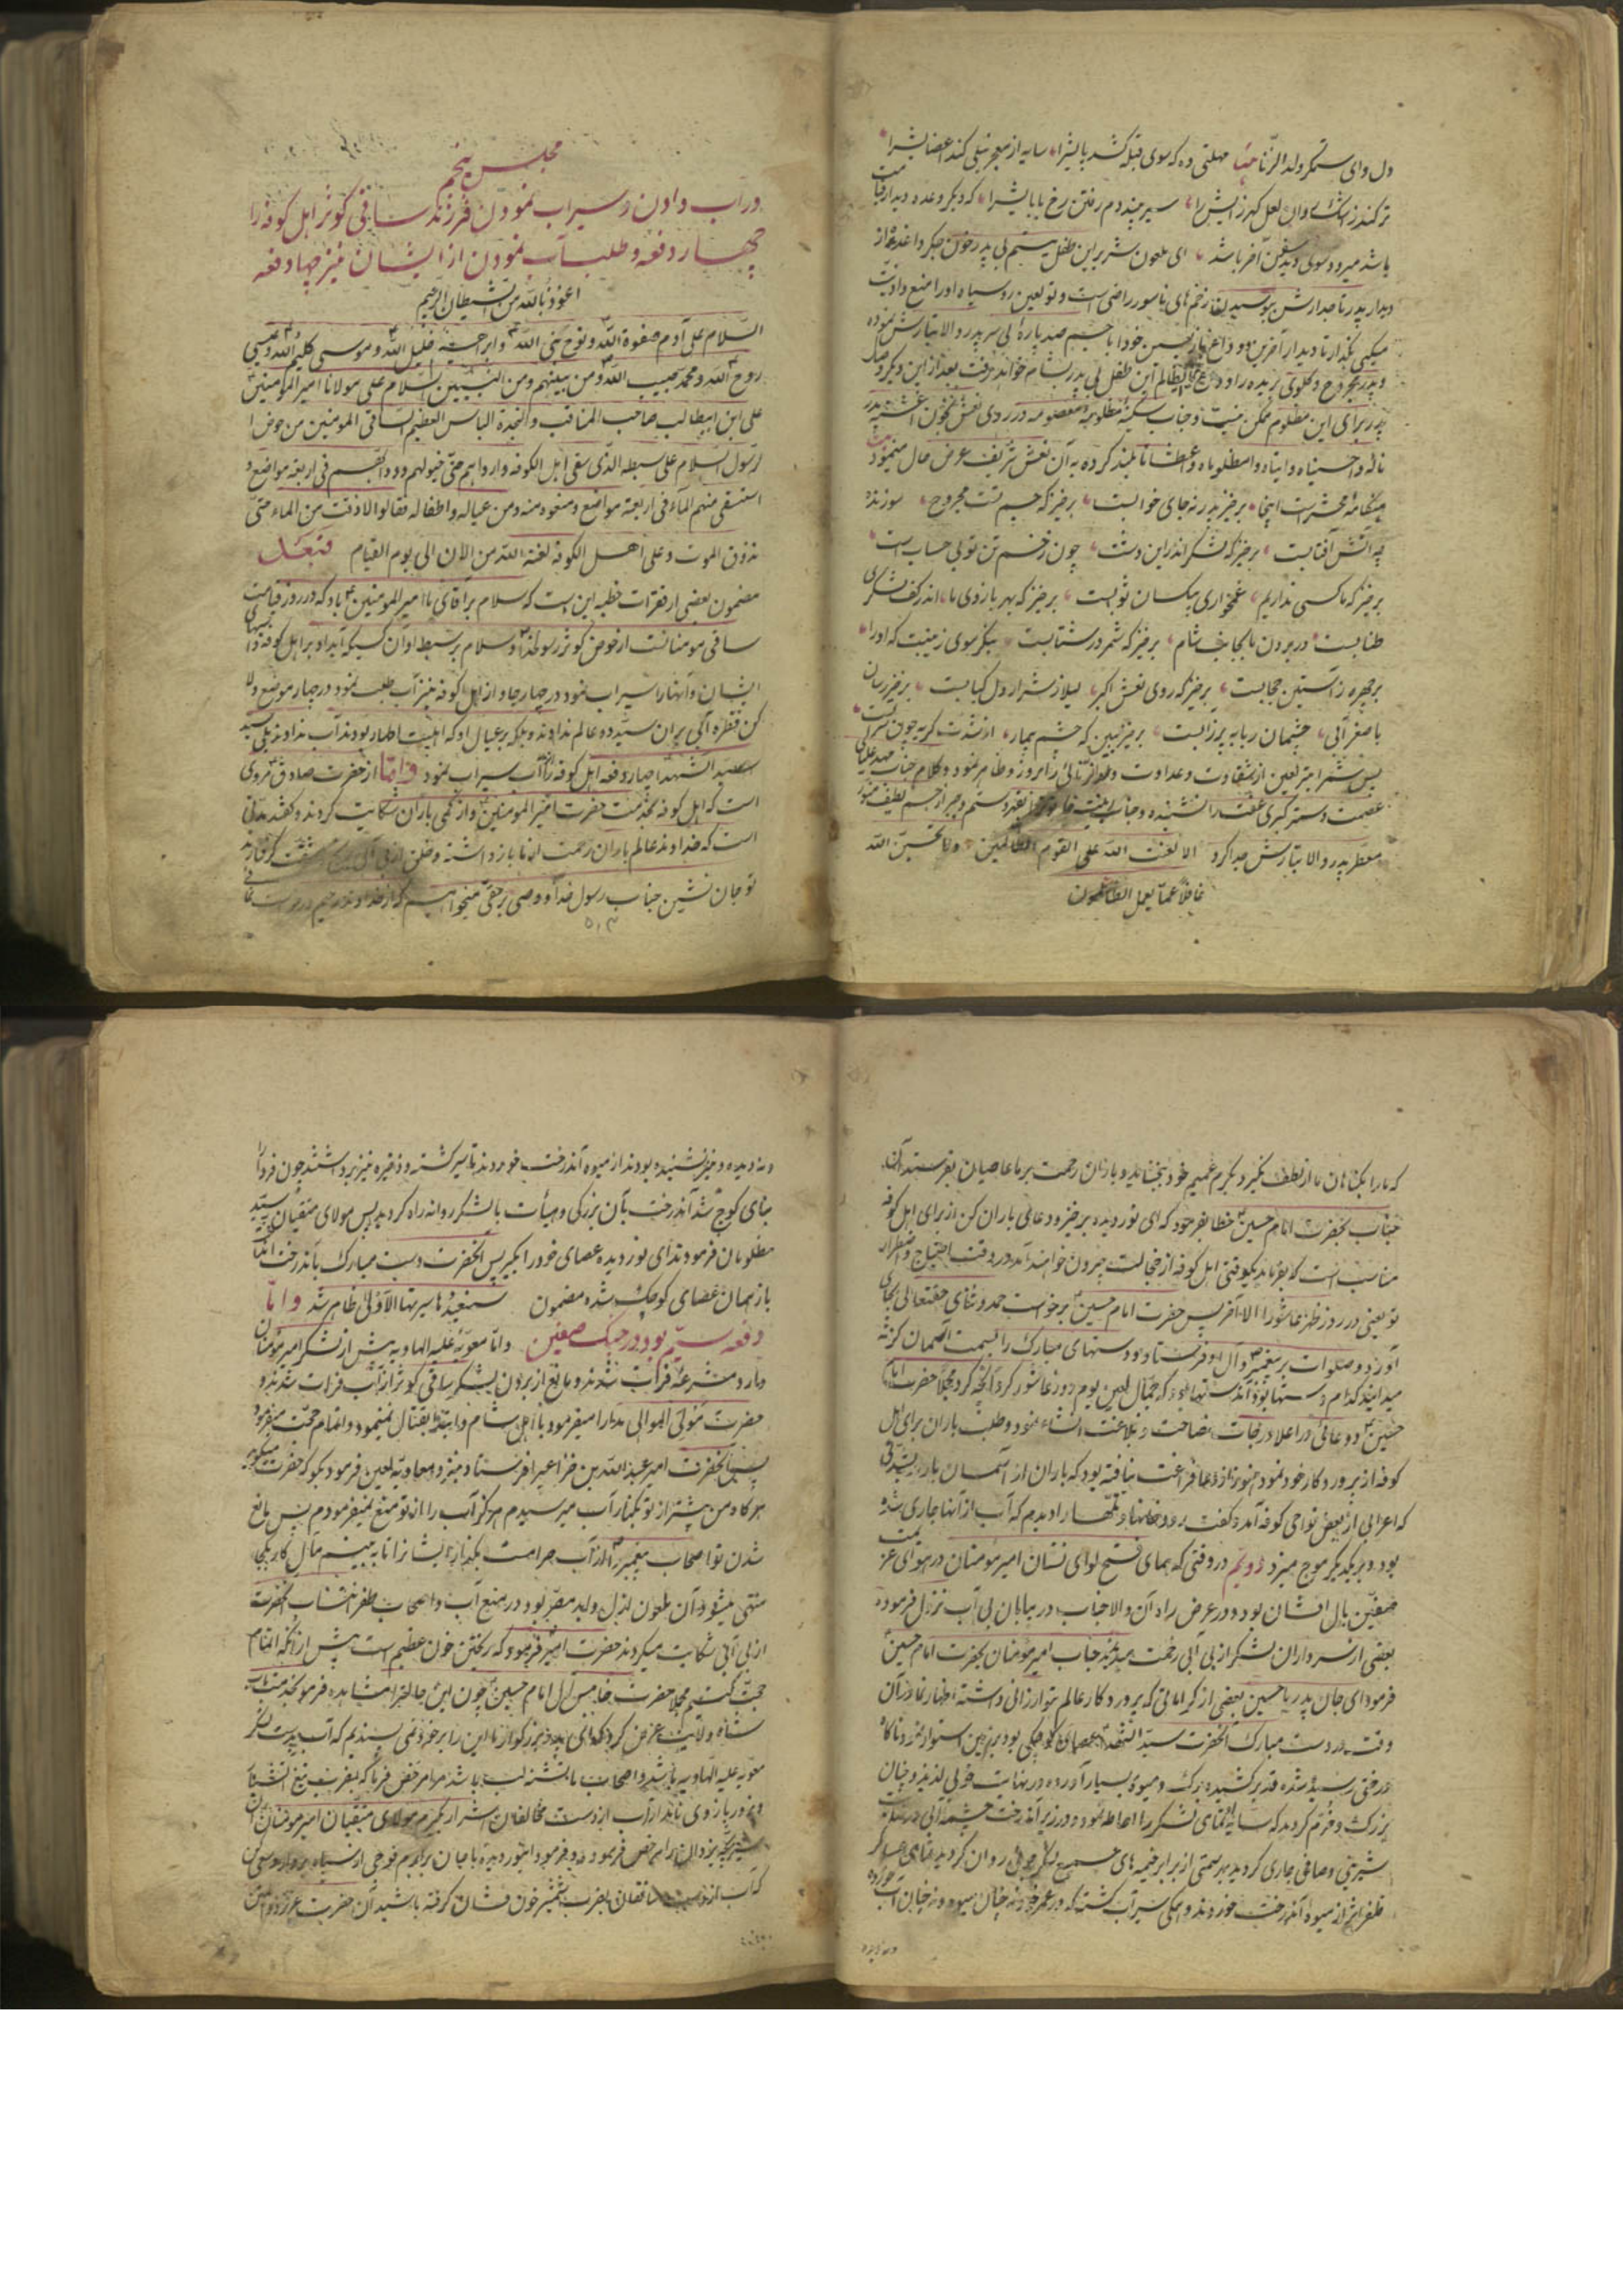 دل وای ستمگر ولد الزنا مهلتی ده که سوی قبله کشد بابشرا سایه از معجر نیلی کند اعضایشرا
تر کند ز اشک دان لعل گهر زایش را سیر بیند دم رفتن رخ بابایشرا که دیگر وعده دیدار قیامت
باشد میرود سوی آخر باشد ای ملعون شریر این طفل یتیم بی پدر خون جگر داغدیده از
دیدار پدر تاجدارش ببوسیدن زخم های ناسور راضی است و تو لعین رو سیاه او را منع و اذیت
میکنی بگذار تا دیدار آخرین و وداع باز پسین خود با جسم صد پاره بی سر پدر والاتبارش نموده
و پدر مجروح و گلوی بریده را وداع ظالم این طفل بی پدر بشام خواهد رفت بعد از این دیگر وصال
پدر برای این مظلوم ممکن نیست و جناب سکینه مظلومه معصومه در روی نعش بخون آغشته پدر
ناله واحسیناه و ابتاه وامظلوماه واعطشانا بلند کرده به آن نعش شریف عرض حال مینمود
هنگامه محشر است اینجا برخیز پدر نه جای خوابست برخیز که جسم تست مجروح سوزنده
چه آتش آفتابست برخیز که لشکر اندر این دشت چون زخم تن تو بی حساب است
برخیز که ما کسی نداریم غمخواری بیکسان ثوابست برخیز که بهر بازوی ما اندر کف لشکری
طنابست در بردن ما بجانب شام برخیز که شمر در شتابست بنگر سوی زینبت که او را
بر چهره ز آستین حجابست برخیز که روی نعش اکبر لیلا ز شرار دل کبابست برخیز رسان
باصغر آبی چشمان ربابه پر ز آبست برخیز ببین که چشم بیمار از شدت گریه چون
پس شمر ابتر لعین از شقاوت و عداوت بروز و ظاهر نمود و کلام جناب مهد علیای
عصمت و ستر کبری عفت را نشنیده و جناب سکینه خاتون را بقهر و ستم و جبر از جسم لطیف منور
معطر پدر والاتبارش جدا کرد الا لعنت الله علی القوم الظالمین ولا تحسبن الله
غافلا عما یعمل الظالمون
مجلس پنجم
در آب دادن و سیراب نمودن فرزند ساقی کوثر اهل کوفه را
چهار دفعه و طلب آب نمودن از ایشان نیز چهار دفعه
اعوذ بالله من الشیطان الرجیم
السلام علی آدم صفوة الله و نوح نجی الله و ابراهیم خلیل الله و موسی کلیم الله و عیسی
روح الله و محمد حبیب الله و من بینهم و من النبیین السلام علی مولانا امیر المؤمنین
علی ابن ابیطالب صاحب المناقب و النجدة الباس العظیم الساقی المومنین من حوض
الرسول السلام علی سبطه الذی سقی اهل الکوفه و ارواهم حتی خیولهم و دوابهم فی اربعة مواضع و
استسقی منهم الماء فی اربعة مواضع و منعوه منه و من عیاله و اطفاله فقالوا لا ذقت من الماء حتی
تذوق الموت و علی اهل الکوفه لعنة الله من الآن الی یوم القیام فبعد
مضمون بعضی از فقرات خطبه این است که سلام بر آقای ما امیر المومنین باد که در روز قیامت
ساقی مومنانست از حوض کوثر رسولخدا و سلام بر سبط او آن کسیکه آبداد بر اهل کوفه و اسبهای
ایشان و آنها را سیراب نمود در چهار جا و از اهل کوفه نیز آب طلب نمود در چهار موضع ولا
کن قطره آبی بر آن سید دو عالم ندادند و بلکه بر عیال او که اهلبیت اطهار بودند آب ندادند بلی سید
سید الشهدا چهار دفعه اهل کوفه را از آب سیراب نمود و اما از حضرت صادق مروی
است که اهل کوفه بخدمت حضرت امیر المومنین از کمی باران شکایت کردند و گفتند مدتی
است که خداوند عالم باران رحمت از ما باز داشته و خلق از بی آبی بمشقت گرفتارند
تو جان نشین جناب رسول خدا و وصی برحقی میخواهیم که از خداوند رحیم درخواست نمائی
که ما را بگناهان ما از لطف نگیرد بکرم عمیم خود ببخشاید و باران رحمت بر ما عاصیان بفرستد آن
جناب بحضرت امام حسین خطا بفرمود که ای نور دیده برخیز و دعای باران کن از برای اهل کوفه
مناسب است که بفرماید یکوقتی اهل کوفه از خجالت بیرون خواهند آمد در وقت احتیاج و اضطرار
تو یعنی در روز ظهر عاشورا الی آخر پس حضرت امام حسین برخواست حمد و ثنای حقتعالی بجای
آورد و صلوات بر پیغمبر و آل او فرستاد و دستهای مبارک را بسمت آسمان گرفته
میدانید کدام دستها بود آندستها بود که جمال لعین یوم روز عاشور کرد آنچه کرد مجملا حضرت امام
حسین دعائی در اعلا درجات فصاحت و بلاغت انشاء نمود و طلب باران برای اهل
کوفه از پرورد کار خود نمود هنوز از دعا فراغت نیافته بود که باران از آسمان بارید بقدری
که اعرابی از بعض نواحی کوفه آمد و گفت رودخانها و تلها را دیدم که آب از آنها جاری شده
بود و بر یکدیگر موج میزد دویم در وقتی که همای فتح لوای نشان امیر مومنان در هوای عزیمت
صفین بال افشان بود و در عرض راه آن والا جناب در بیابان بی آب نزول فرموده
بعضی از سرداران لشکر از بی آبی زحمت میدیدند جناب امیر مومنان بحضرت امام حسین
فرمود ای جان پدر یا حسین بعضی از کراماتی که پرورد کار عالم بتو ارزانی داشته اظهار نما در آن
وقت در دست مبارک آنحضرت سید الشهدا عصای کوچکی بود بر زمین استوار نمود ناگاه
درختی رسیده شده قد بر کشیده برگ و میوه بسیار آورده در نهایت خوبی لذیذ و چنان
بزرگ و خرم گردید که سایه تمامی لشکر را احاطه نمود و در زیر آندرخت چشمه آبی در نهایت
شیرینی و صافی جاری گردید بهر سمتی از برابر خیمه های جمیع لشکر روان گردید تمامی عساکر
ظفر اثر از میوه آندرخت خوردند و همگی سیرآب گشتند که در عمر خود نه چنان میوه و نه چنان آب خورده
و نه دیده
و نه دیده و نیز نشنیده بودند از میوه آندرخت خوردند تا سیر گشته و ذخیره نیز برداشتند چون فردا
بنای کوچ شد آندرخت بآن بزرگی و هیأت با لشکر روانه راه گردید پس مولای متقیان بسید
مظلومان فرمودند ای نور دیده عصای خود را بگیر پس آنحضرت دست مبارک بآندرخت
باز همان عصای کوچک شده مضمون سنعیدها سیرتها الاولی ظاهر شد و اما
دفعه سیم بود در جنگ صفین و اما معویه علیه الهاویه پیش از لشکر امیر مومنان
وارد مشرعه فرات شدند و مانع از بردن لشکر ساقی کوثر از آب فرات شدند و
حضرت مولی الموالی مدارا میفرمود با اهل شام و ابتدا بقتال نمینمود و اتمام حجت میفرمود
پس آنحضرت امیر عبدالله بن خزاعیرا فرستاد بنزد معاویه لعین فرمود بگو که حضرت میگوید
هرگاه من پیشتر از تو بکنار آب میرسیدم هرگز آب را از تو منع نمیفرمودم پس مانع
شدن تو اصحاب پیغمبر را از آب حرامست بگذار ایشانرا تا به بینیم مآل کار بکجا
منتهی میشود آن ملعون ازل و ابد مصر بود در منع آب و اصحاب ظفر انتساب آنحضرت
از بی آبی شکایت میکردند حضرت امیر فرمود که ریختن خون عظیم است پیش از آنکه اتمام
حجت کنیم مجملا حضرت خامس آل امام حسین چون این حالترا مشاهده فرمود بخدمت
شاه ولایت عرض کرد که ای پدر بزرگوار ما این را بر خود نمی پسندیم که آب بدست لشکر
معویه علیه الهاویه باشد و اصحاب ما تشنه لب باشند مرا مرخص فرما که بضرب تیغ آتشبار
و بزور بازوی نامدار آب از دست مخالفان اشرار بگیرم مولای متقیان امیر مومنان آن
شیر بچه یزدان را مرخص فرمود و فرمود ای نور دیده با جان برادرم فوجی از سپاه بردار و سعی کن
که آب از دست منافقان بضرب شمشیر خون فشان گرفته باشید آن حضرت